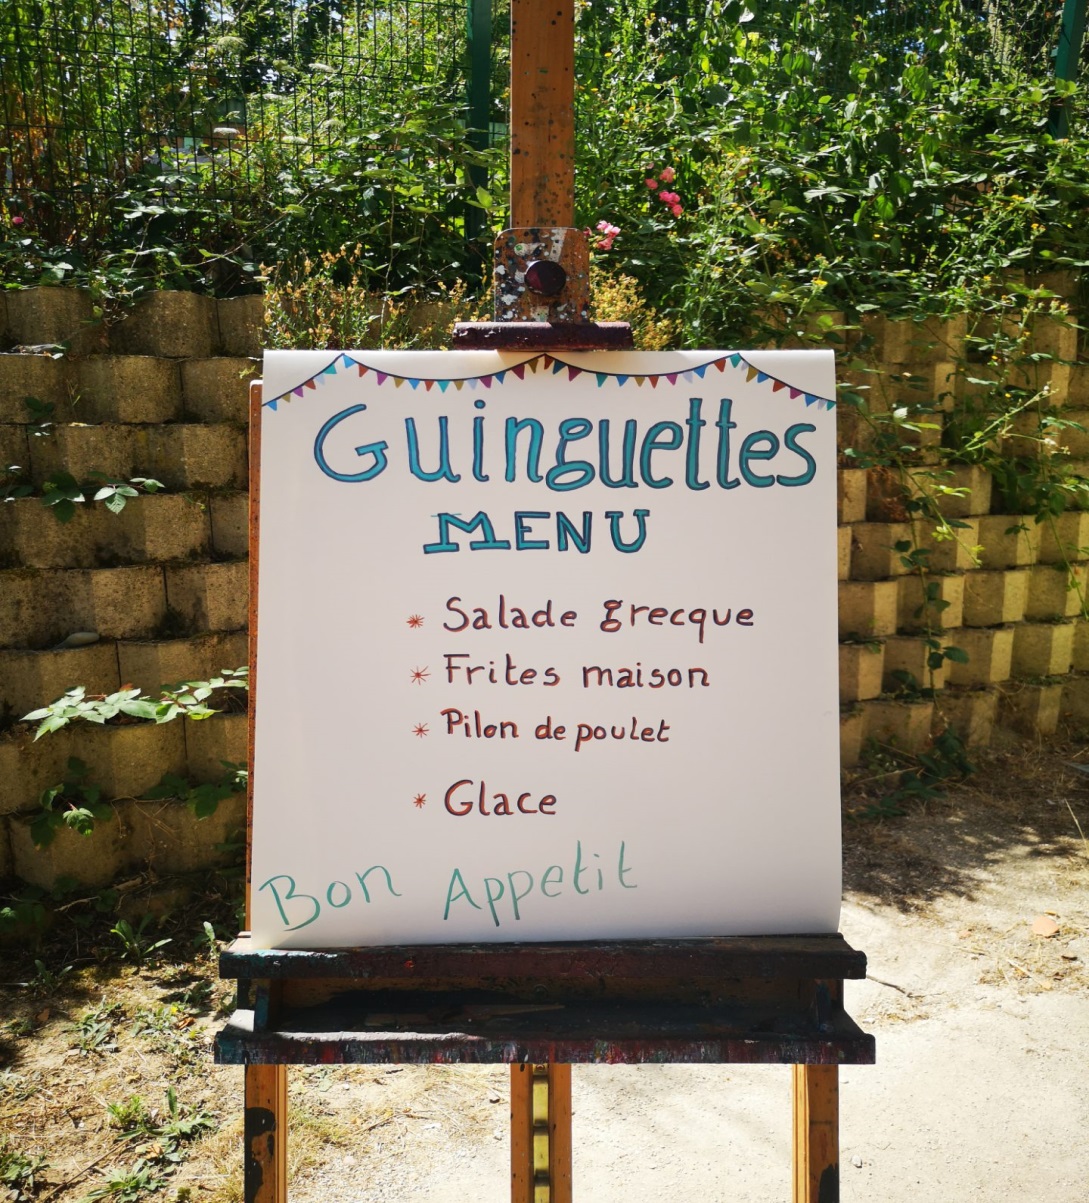 Guinguettes
MENU
* Salade grecque
* Frites maison
* Pilon de poulet
* Glace
Bon Appetit